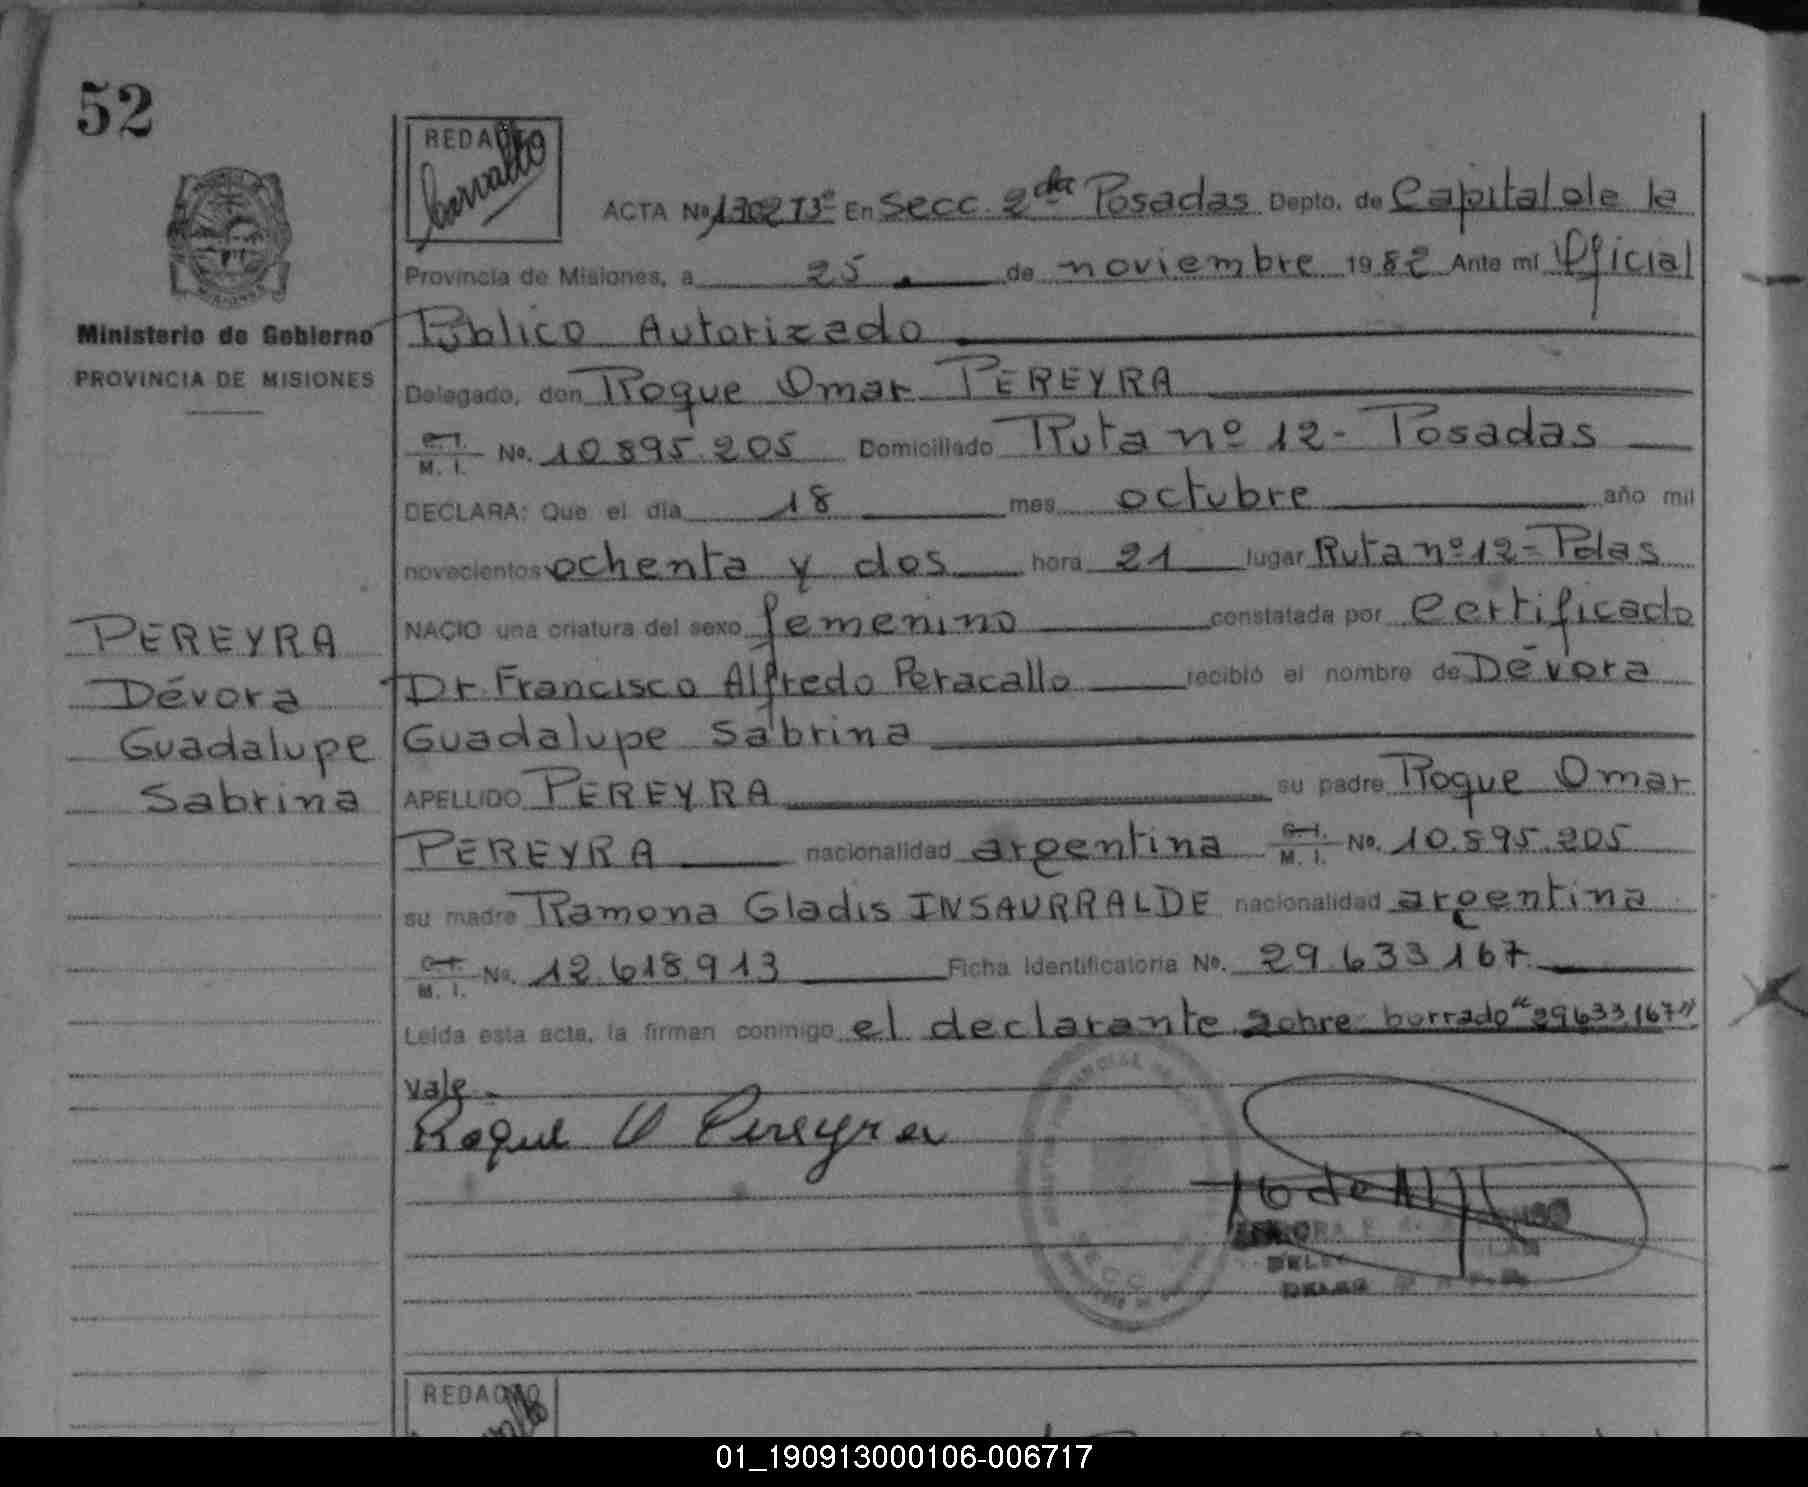 52
REDACTO
Carvallo
ACTA No 1302 Tº 3º En Secc. 2da Posadas Depto. de Capital de la
Provincia de Misiones, a 25 de noviembre 1982 Ante mí Oficial
Ministerio de Gobierno
Público Autorizado
PROVINCIA DE MISIONES
Delegado, don Roque Omar PEREYRA
C. I.
M. I. No. 10.895.205 Domiciliado Ruta nº 12 - Posadas
DECLARA: Que el día 18 mes octubre año mil
novecientos ochenta y dos hora 21 lugar Ruta nº 12 - Pdas
PEREYRA
Dévora
Guadalupe
Sabrina
NACIO una criatura del sexo femenino constatada por Certificado
Dr. Francisco Alfredo Peracallo recibió el nombre de Dévora
Guadalupe Sabrina
APELLIDO PEREYRA su padre Roque Omar
PEREYRA nacionalidad argentina C. I. M. I. No. 10.895.205
su madre Ramona Gladis INSAURRALDE nacionalidad argentina
C. I.
M. I. No. 12.618.913 Ficha Identificatoria No. 29.633.167
Leída esta acta, la firman conmigo el declarante sobre borrado "29.633.167"
vale.
Roque O Pereyra
SECC
REDACTO
01_190913000106-006717